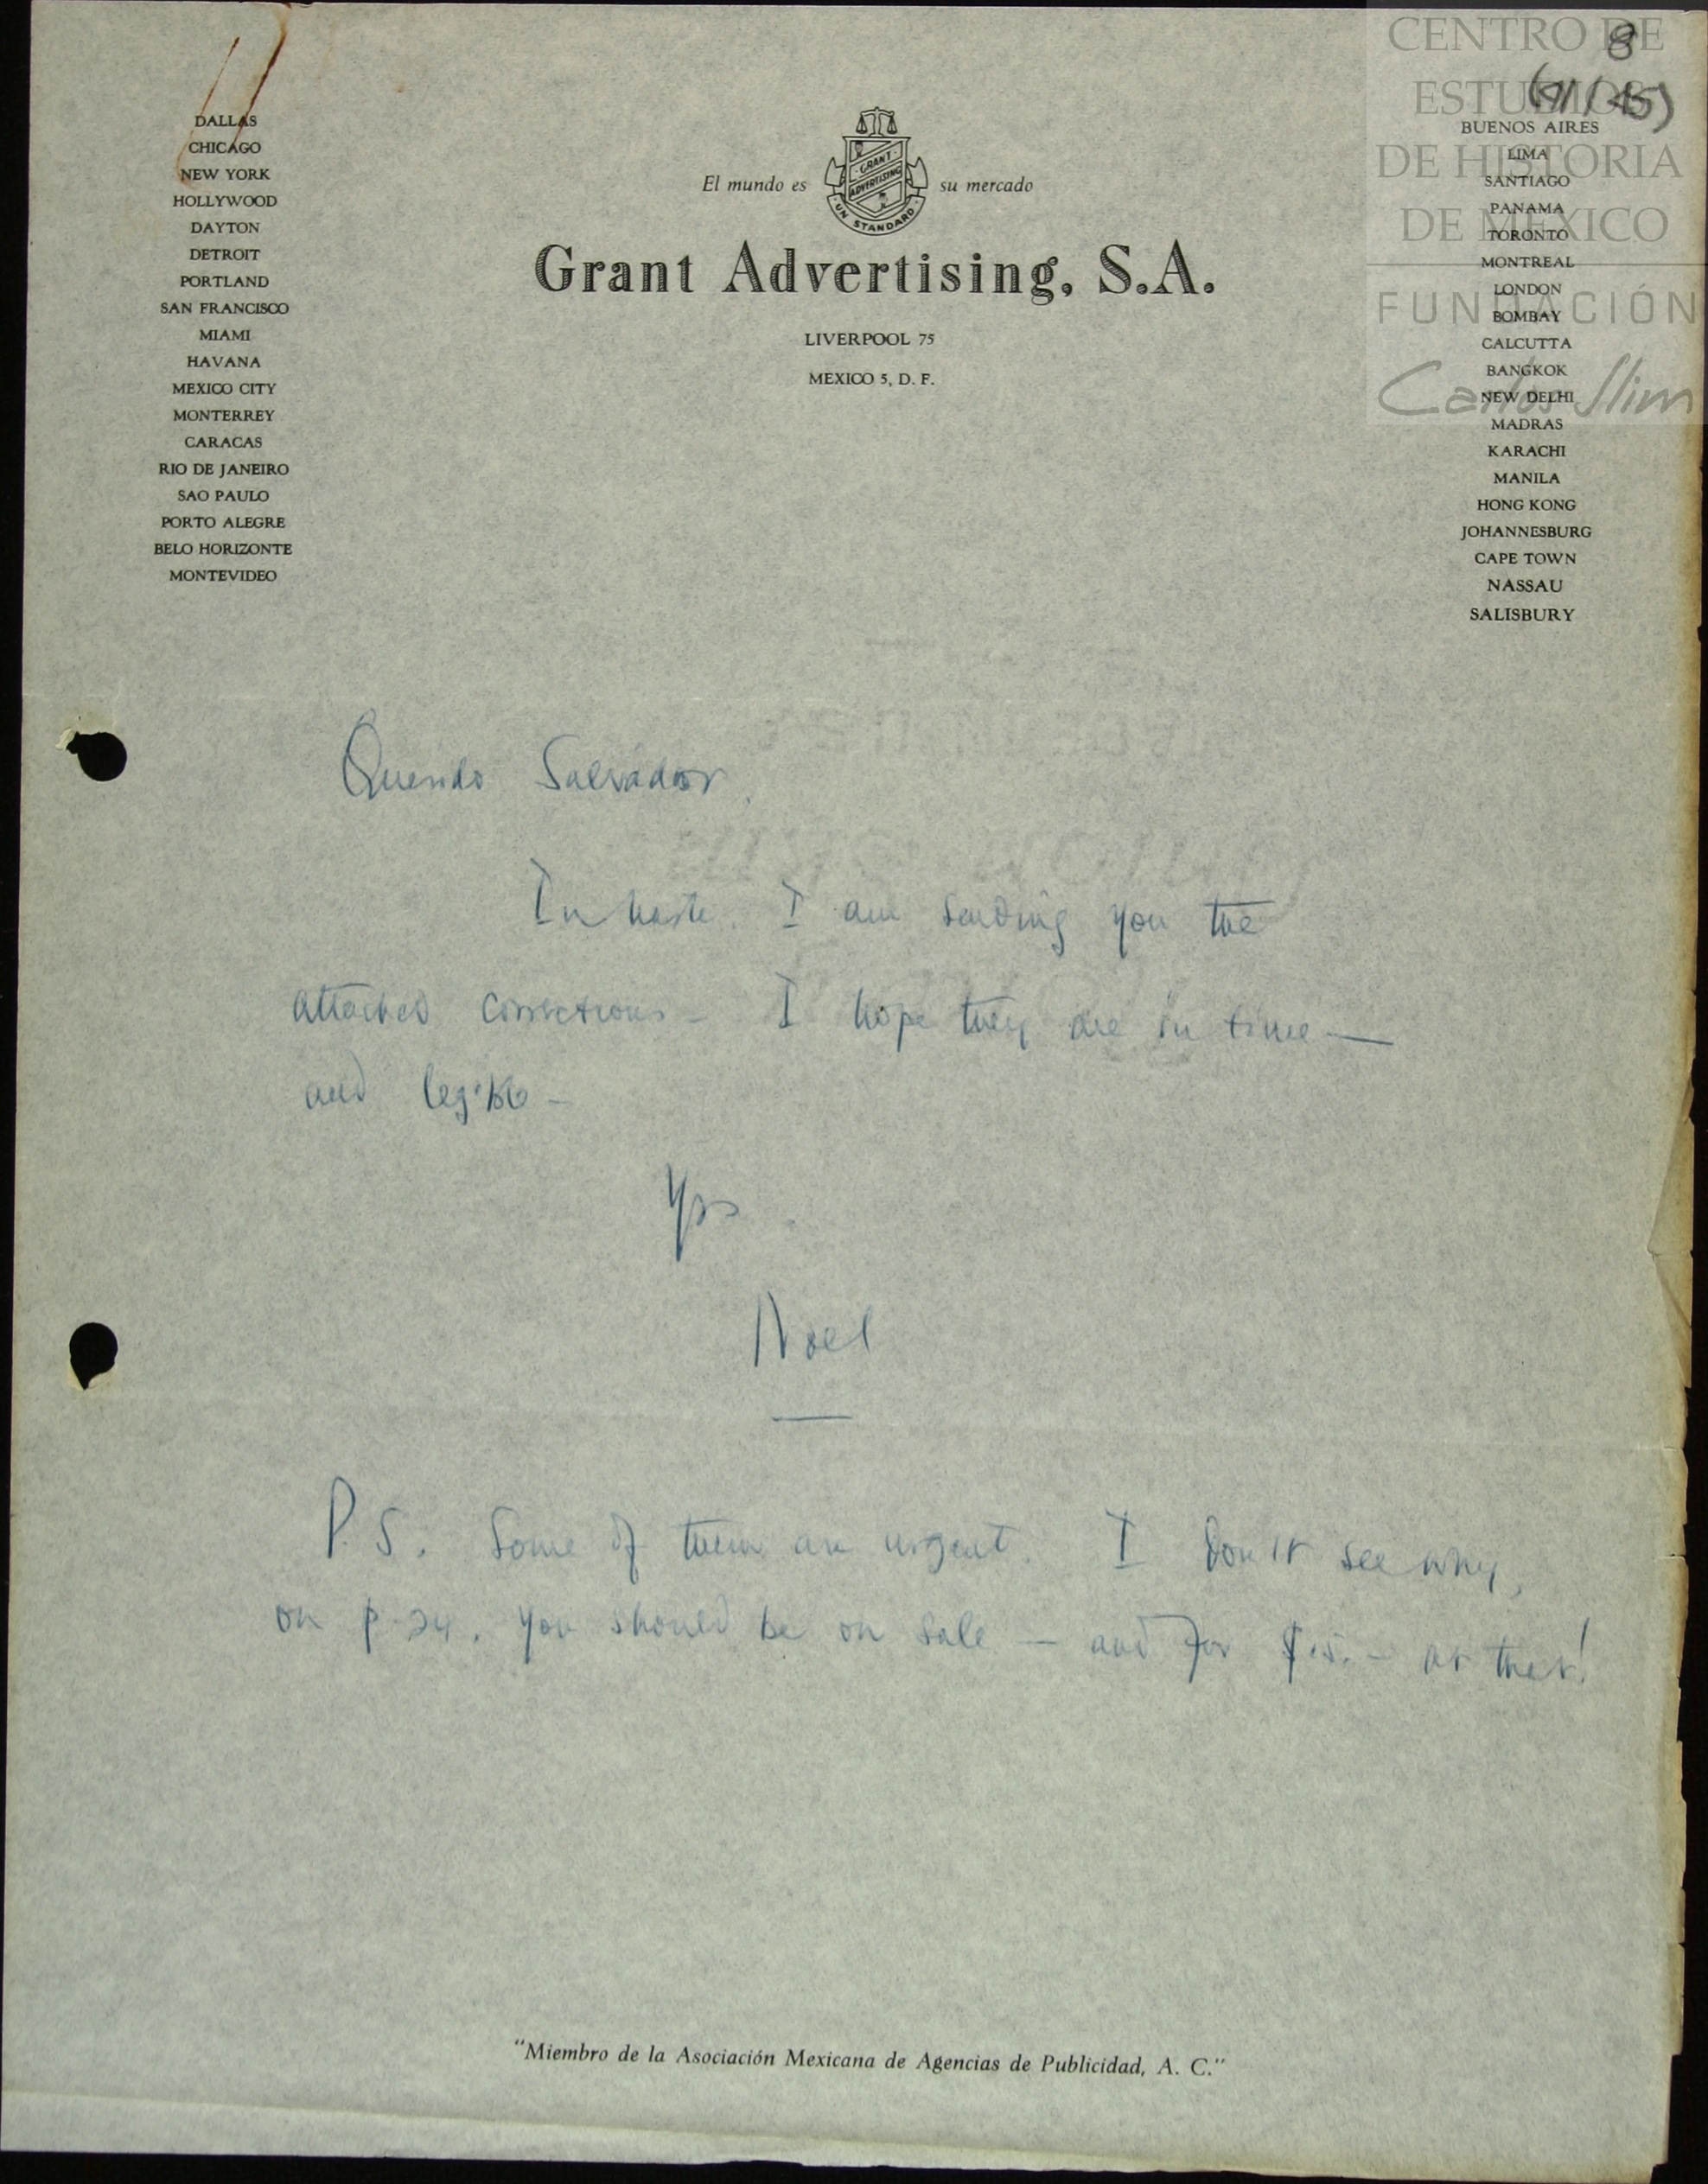 8
DALLAS
CHICAGO
NEW YORK
HOLLYWOOD
DAYTON
DETROIT
PORTLAND
SAN FRANCISCO
MIAMI
HAVANA
MEXICO CITY
MONTERREY
CARACAS
RIO DE JANEIRO
SAO PAULO
PORTO ALEGRE
BELO HORIZONTE
MONTEVIDEO
El mundo es su mercado
GRANT
ADVERTISING
UN STANDARD
Grant Advertising, S.A.
LIVERPOOL 75
MEXICO 5, D. F.
CENTRO DE
ESTUDIOS
DE HISTORIA
DE MÉXICO
FUNDACIÓN
Carlos Slim
BUENOS AIRES
LIMA
SANTIAGO
PANAMA
TORONTO
MONTREAL
LONDON
BOMBAY
CALCUTTA
BANGKOK
NEW DELHI
MADRAS
KARACHI
MANILA
HONG KONG
JOHANNESBURG
CAPE TOWN
NASSAU
SALISBURY
Querido Salvador,
In haste. I am sending you the
attached corrections - I hope they are in time —
and legible -
Yrs
Noel
P.S. Some of them are urgent. I don't see why,
on p. 24, you should be on sale — and for at that!
"Miembro de la Asociación Mexicana de Agencias de Publicidad, A. C."